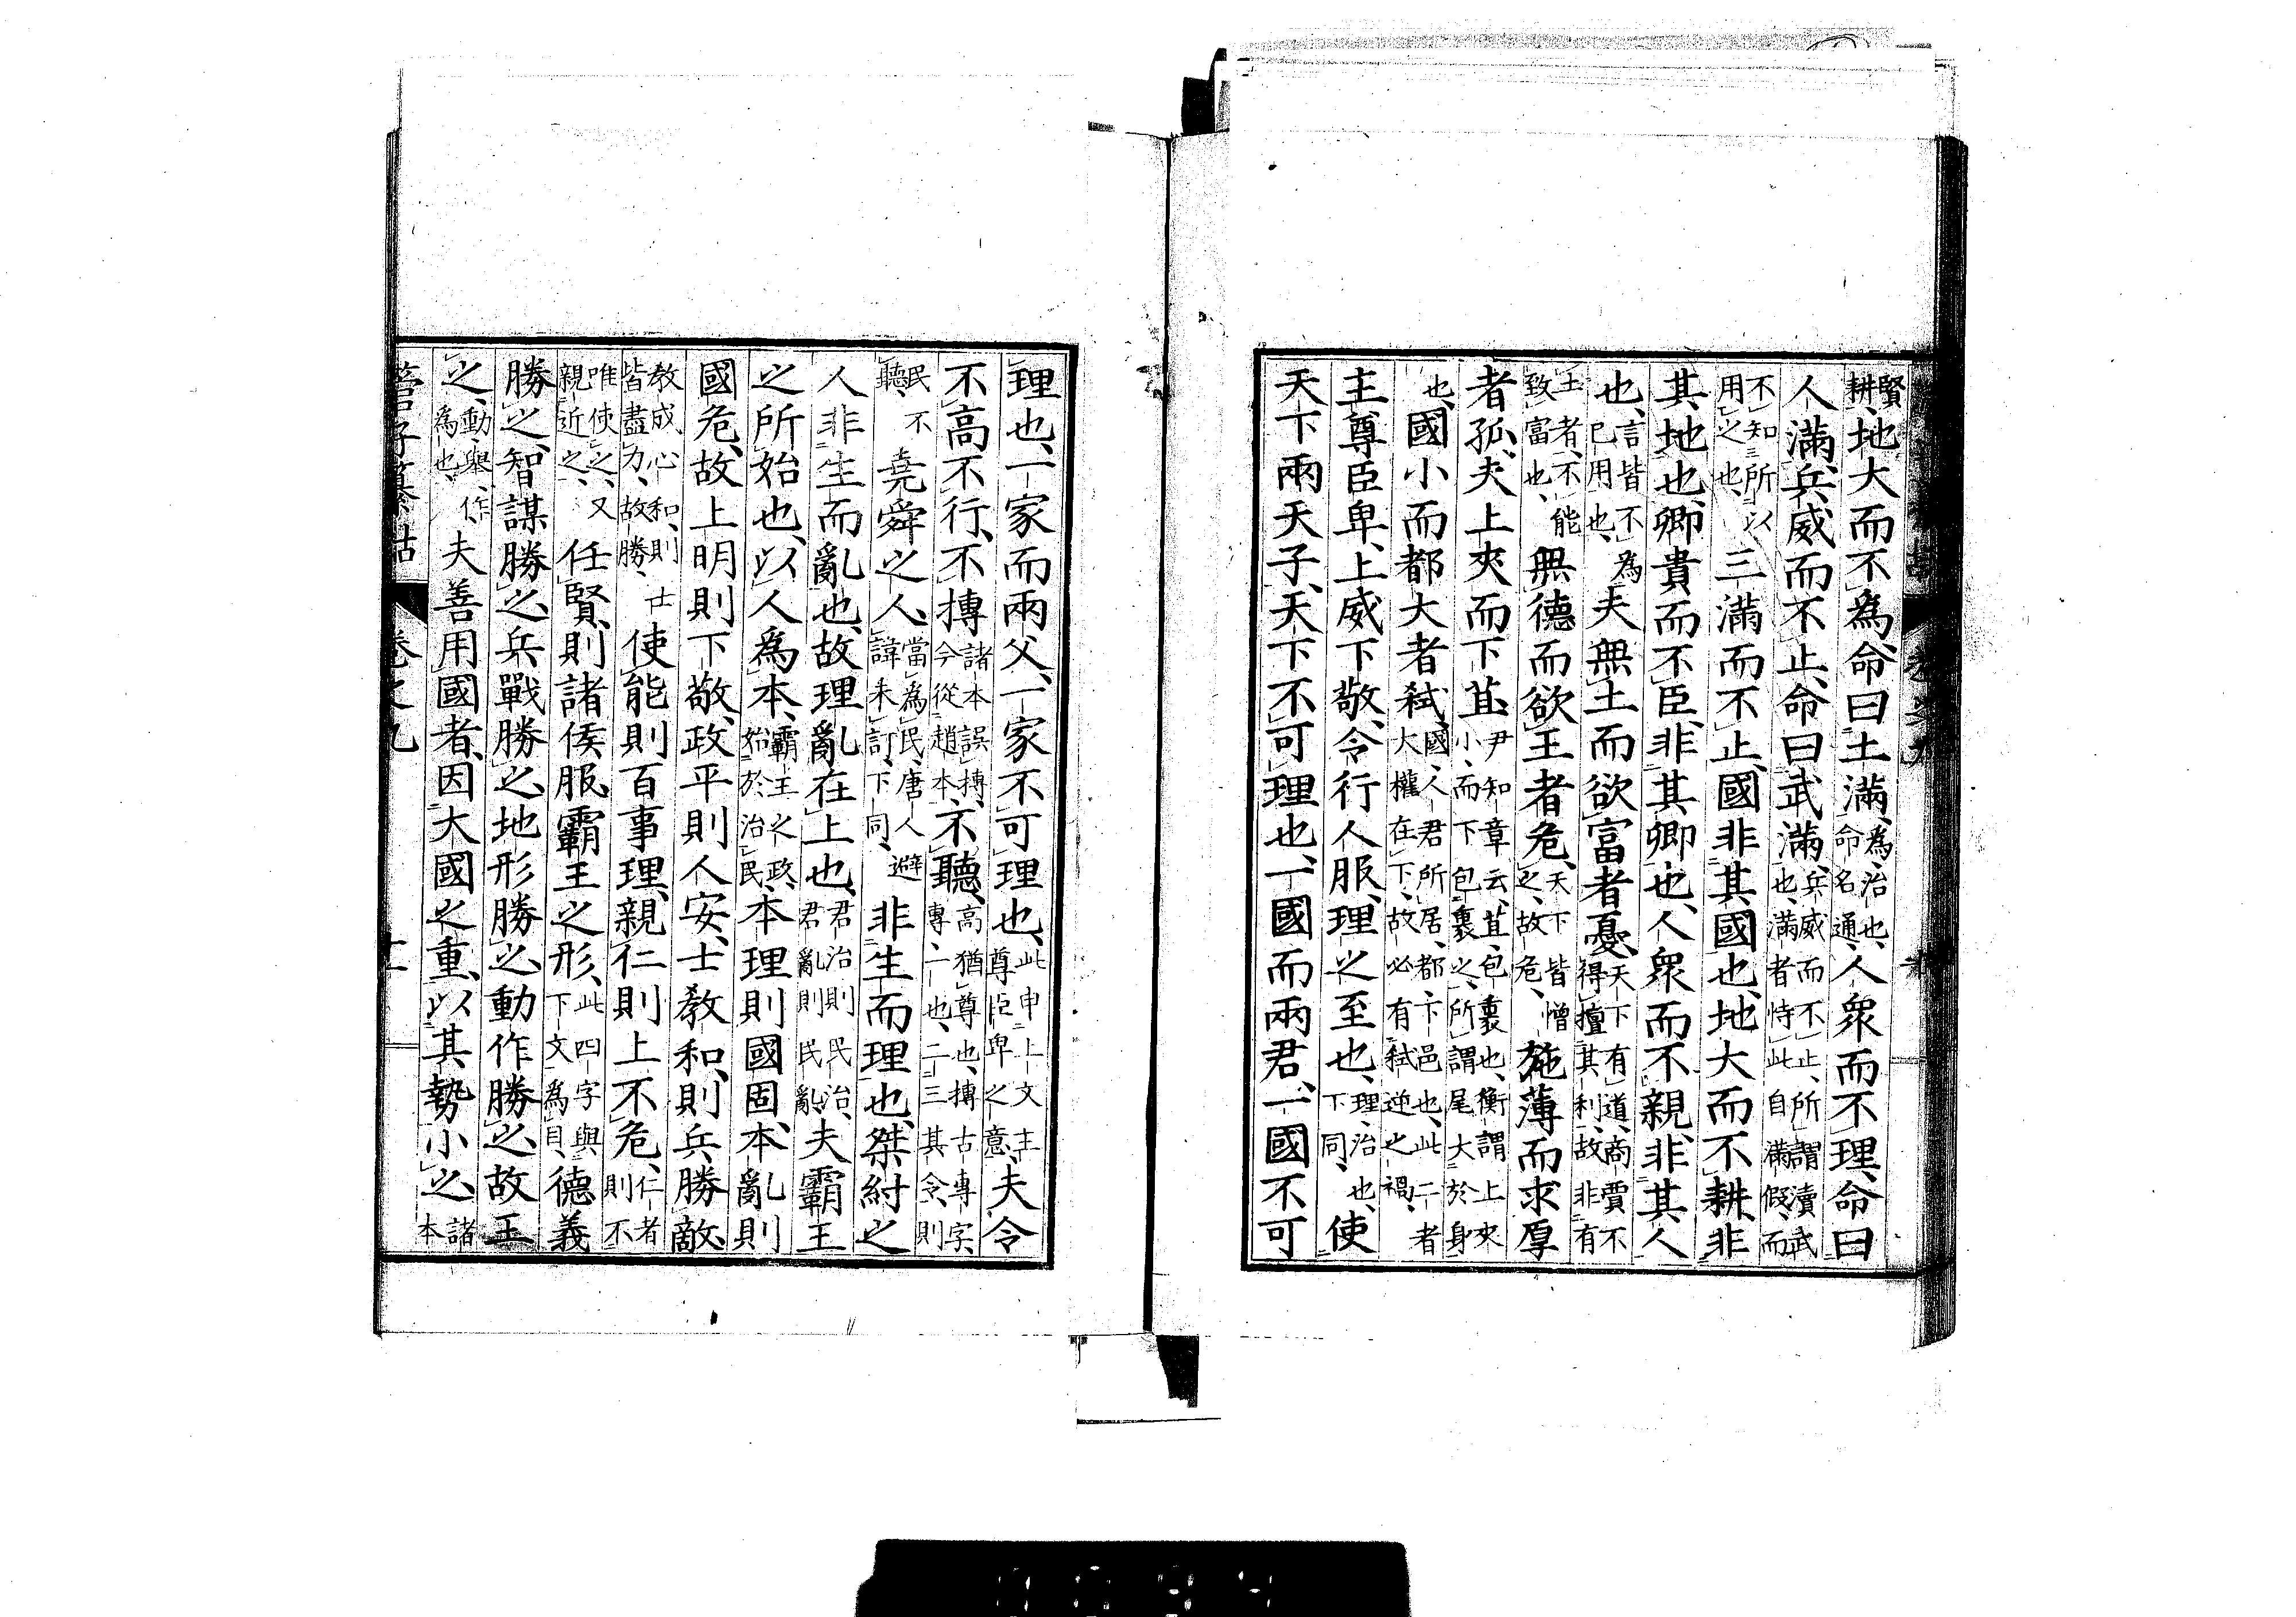 賢耕、地大而不爲、命曰土滿、爲、治也、命名通、人衆而不理、命曰
人滿、兵威而不止、命曰武滿、兵威而不止、所謂瀆武也、滿者恃此自滿假、而
不知所以用之也、三滿而不止、國非其國也、地大而不耕、非
其地也、卿貴而不臣、非其卿也、人衆而不親、非其人
也、言皆不爲己用也、夫無土而欲富者憂、天下有道、商賈不得擅其利、故非有
土者、不能致富也、無德而欲王者危、天下皆憎之、故危、施薄而求厚
者孤、夫上夾而下苴、尹知章云、苴、包裹也、衡謂上夾小、而下包裹之、所謂尾大於身
也、國小而都大者弑、國、人君所居、都、卞邑也、此二者大權在下、故必有弑逆之禍、
主尊臣卑、上威下敬、令行人服、理之至也、理、治也、下同、使
天下兩天子、天下不可理也、一國而兩君、一國不可
理也、一家而兩父、一家不可理也、此申上文主尊臣卑之意、夫令
不高不行、不摶諸本誤摶、今從趙本、不聽、高猶尊也、摶古專字、專一也、二三其令、則
民不聽、堯舜之人、當爲民、唐人避諱未訂、下同、非生而理也、桀紂之
人非生而亂也、故理亂在上也、君治則民治、君亂則民亂、夫霸王
之所始也、以人爲本、霸王之政、始於治民、本理則國固、本亂則
國危、故上明則下敬、政平則人安、士敎和、則兵勝敵、
敎成心和、則士皆盡力、故勝、使能則百事理、親仁則上不危、仁者則不
唯使之、又親近之、任賢、則諸侯服、霸王之形、此四字與下文爲目、德義
勝之、智謀勝之、兵戰勝之、地形勝之、動作勝之、故王
之、動、舉、作、爲也、夫善用國者、因大國之重、以其勢小之、諸本
管子纂詁 卷之九 十